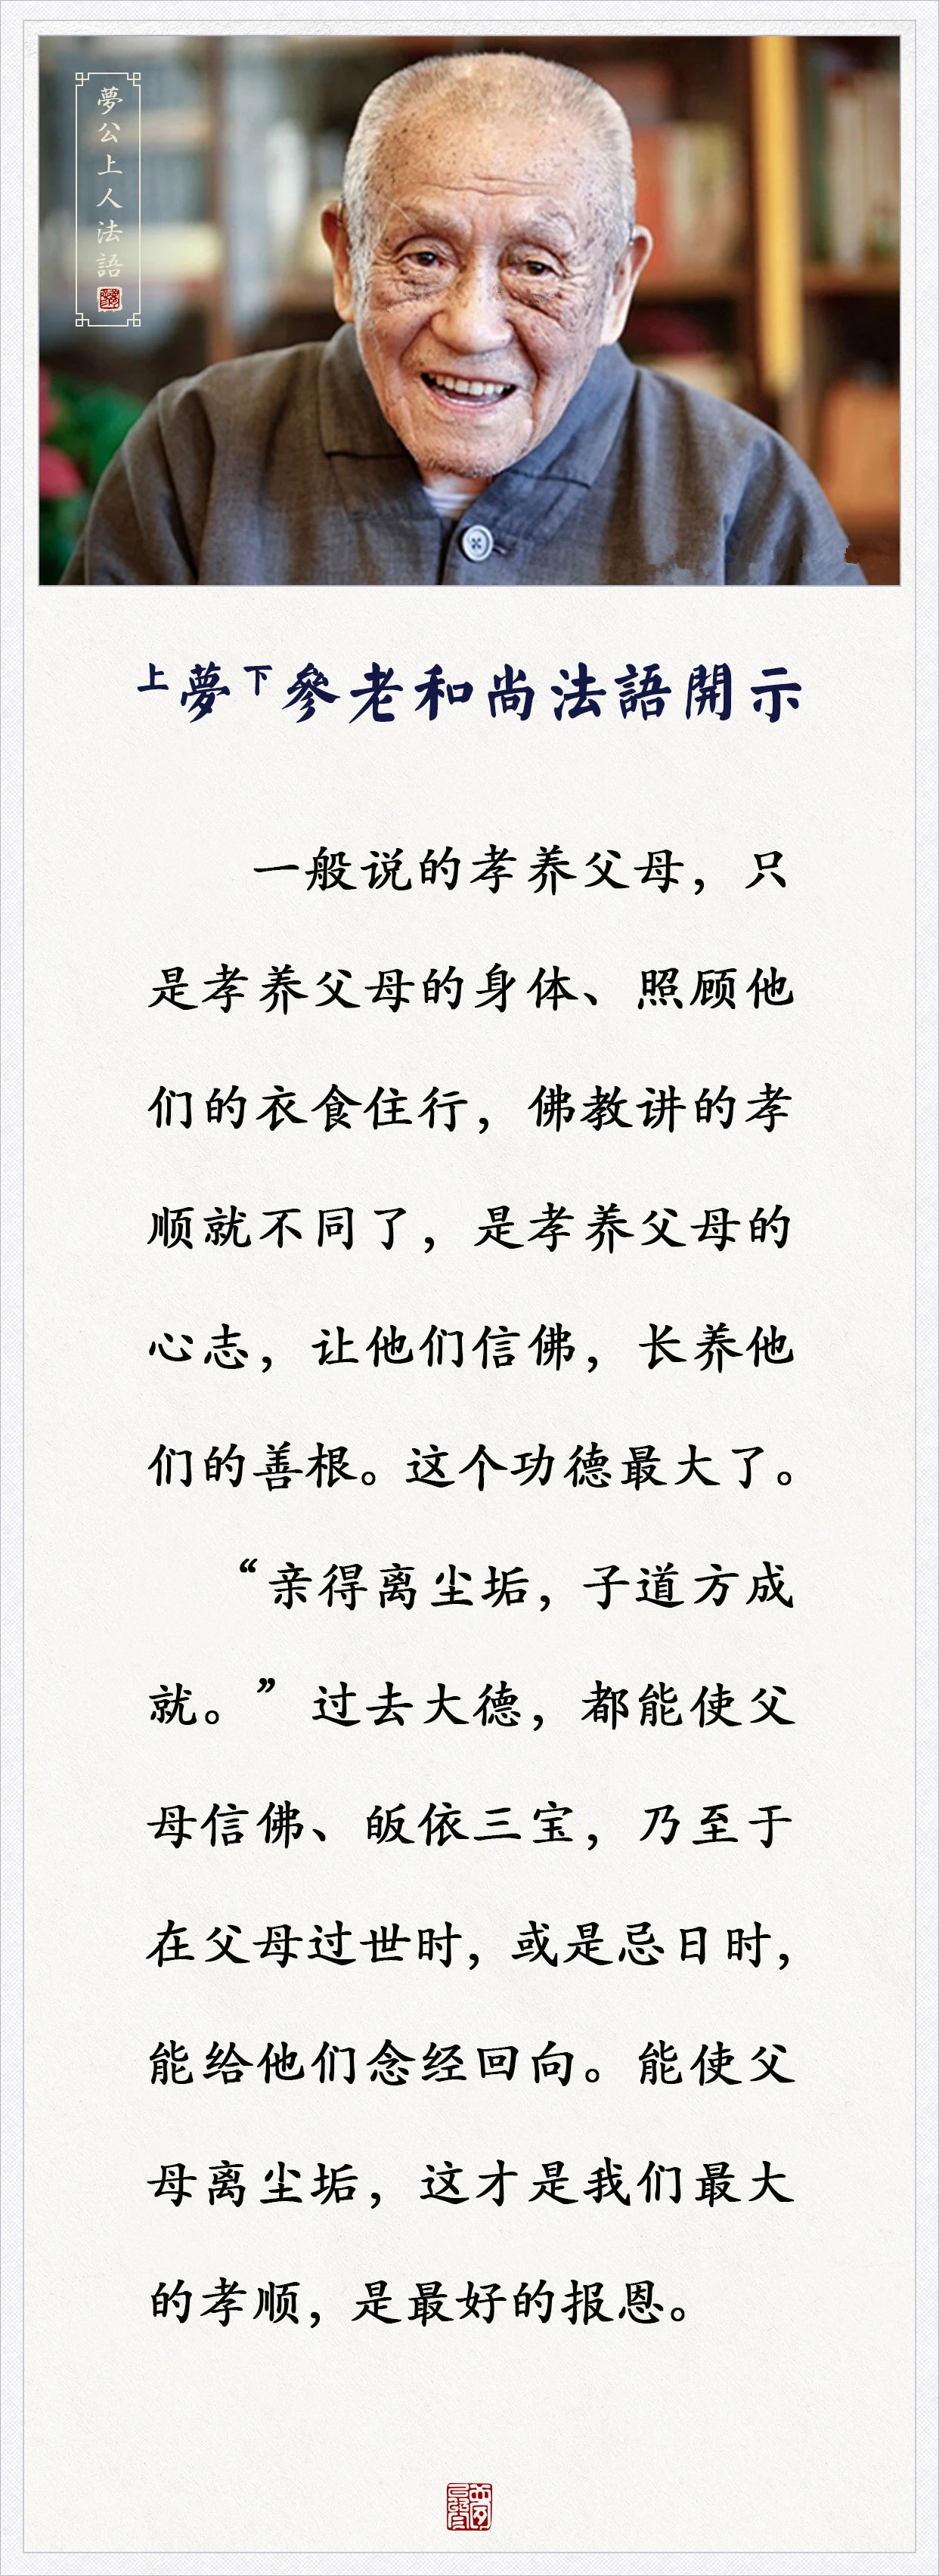 夢公上人法語
上夢下參老和尚法語開示
一般说的孝养父母，只
是孝养父母的身体、照顾他
们的衣食住行，佛教讲的孝
顺就不同了，是孝养父母的
心志，让他们信佛，长养他
们的善根。这个功德最大了。
“亲得离尘垢，子道方成
就。”过去大德，都能使父
母信佛、皈依三宝，乃至于
在父母过世时，或是忌日时，
能给他们念经回向。能使父
母离尘垢，这才是我们最大
的孝顺，是最好的报恩。